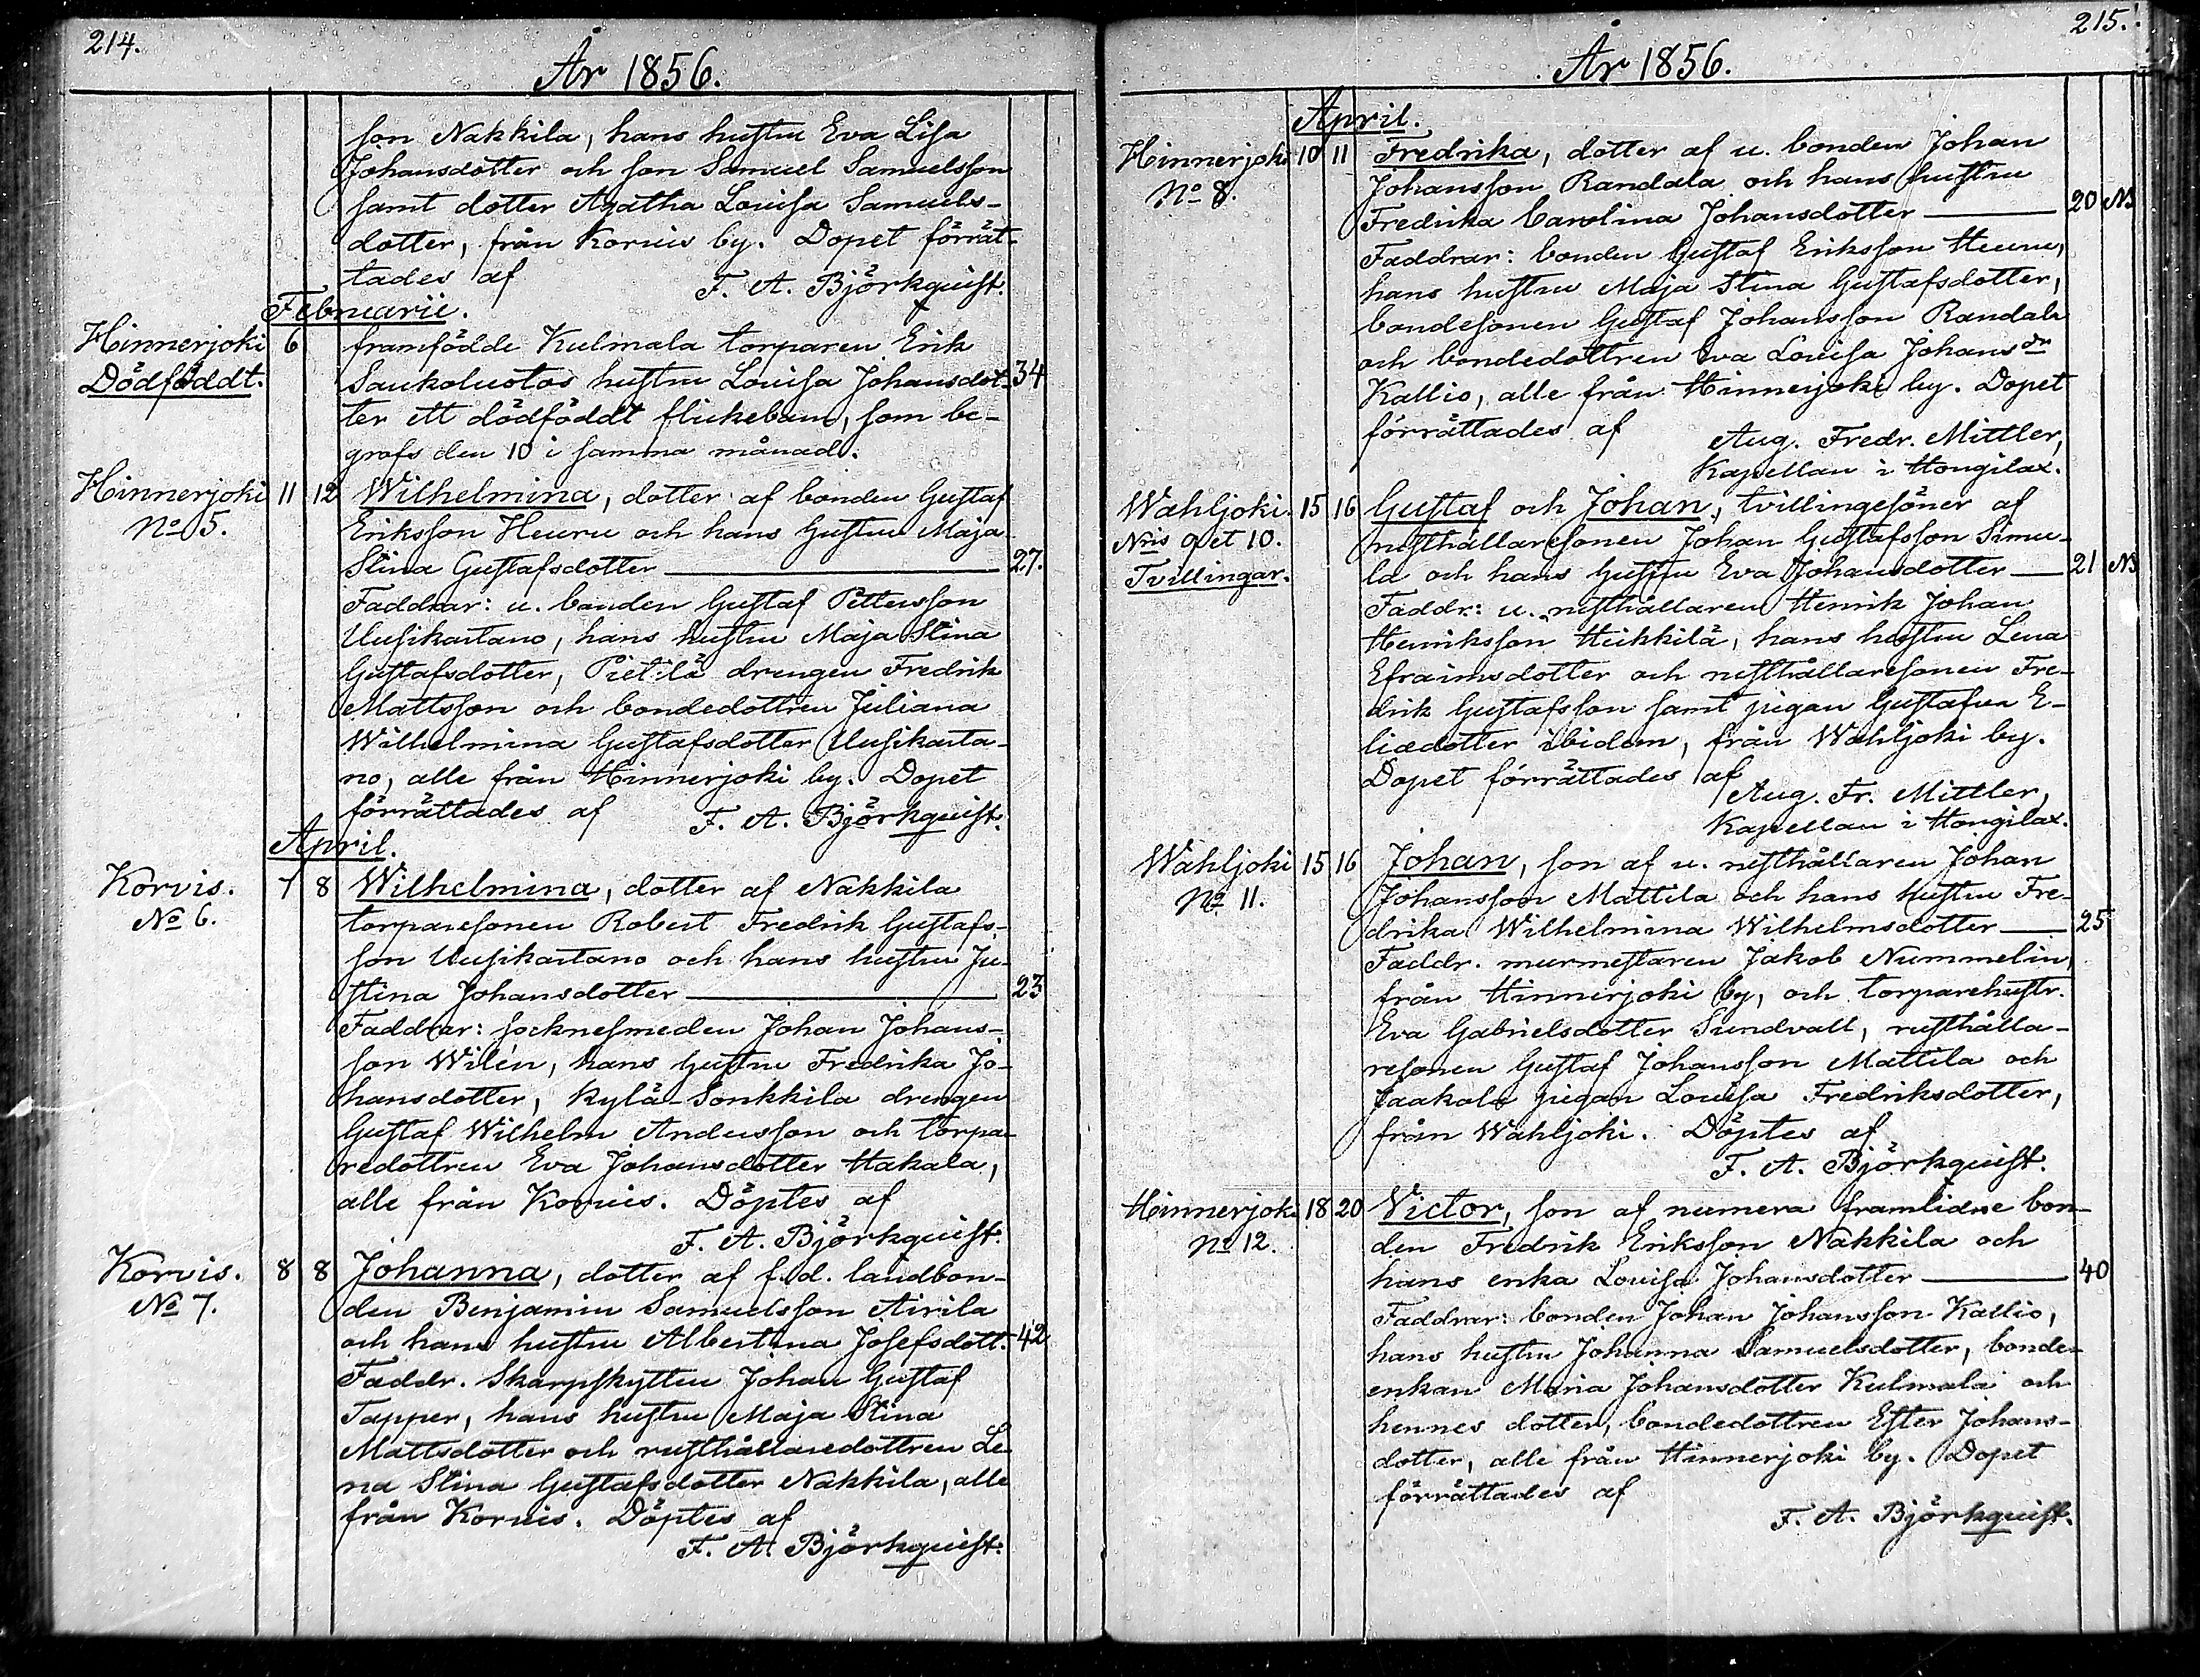 214.
År 1856.
son Nakkila, hans hustru Eva Lisa
Johansdotter och son Samuel Samuelsson
samt dotter Agatha Lovisa Samuels-
dotter, från Korvis by. Dopet förrät-
tades af F. A. Björkquist.
Februarii.
Hinnerjoki 6 framfödde Kulmala torparen Erik
Dödföddt. Saukoluotos hustru Lovisa Johansdot- 34
ter ett dödföddt flickebarn, som be-
grafs den 10 i samma månad.
Hinnerjoki 11 12 Wilhelmina, dotter af bonden Gustaf
No 5. Eriksson Heuru och hans hustru Maja
Stina Gustafsdotter 27.
Faddrar: u. bonden Gustaf Pettersson
Uusikartano, hans hustru Maja Stina
Gustafsdotter, Pietilä drengen Fredrik
Mattsson och bondedottren Juliana
Wilhelmina Gustafsdotter Uusikarta-
no, alle från Hinnerjoki by. Dopet
förrättades af F. A. Björkquist.
April.
Korvis. 7 8 Wilhelmina, dotter af Nakkila
No 6. torparesonen Robert Fredrik Gustafs-
son Uusikartano och hans hustru Ju-
stina Johansdotter 23
Faddrar: socknesmeden Johan Johans-
son Wilén, hans hustru Fredrika Jo-
hansdotter, Kylä-Sonkkila drengen
Gustaf Wilhelm Andersson och torpa-
redottren Eva Johansdotter Hakala,
alle från Korvis. Döptes af
F. A. Björkquist.
Korvis. 8 8 Johanna, dotter af f. d. landbon-
No 7. den Benjamin Samuelsson Airila
och hans hustru Albertina Josefsdott. 42
Faddr. Skarpskytten Johan Gustaf
Tapper, hans hustru Maja Stina
Mattsdotter och rusthållaredottren Le-
na Stina Gustafsdotter Nakkila, alle
från Korvis. Döptes af
F. A. Björkquist.
215.
År 1856.
April.
Hinnerjoki 10 11 Fredrika, dotter af u. bonden Johan
No 8. Johansson Randala och hans hustru
Fredrika Carolina Johansdotter 20 NB
Faddrar: bonden Gustaf Eriksson Heuru,
hans hustru Maja Stina Gustafsdotter,
bondesonen Gustaf Johansson Randala
och bondedottren Eva Lovisa Johansdr
Kallio, alle från Hinnerjoki by. Dopet
förrättades af Aug. Fredr. Mittler,
Kapellan i Hongilax.
Wahljoki. 15 16 Gustaf och Johan, tvillingesöner af
Nris 9 et 10. rusthållaresonen Johan Gustafsson Simu-
Tvillingar. la och hans hustru Eva Johansdotter 21 NB
Faddr: u. rusthållaren Henrik Johan
Henriksson Heikkilä, hans hustru Lena
Efraimsdotter och rusthållaresonen Fre-
drik Gustafsson samt pigan Gustafva E-
liædotter ibidem, från Wahljoki by.
Dopet förrättades af
Aug. Fr. Mittler,
Kapellan i Hongilax.
Wahljoki 15 16 Johan, son af u. rusthållaren Johan
No 11. Johansson Mattila och hans hustru Fre-
drika Wilhelmina Wilhelmsdotter 25
Faddr. murmestaren Jakob Nummelin,
från Hinnerjoki by, och torparehustr.
Eva Gabrielsdotter Sundvall, rusthålla-
resonen Gustaf Johansson Mattila och
Jaakola pigan Lovisa Fredriksdotter,
från Wahljoki. Döptes af
F. A. Björkquist.
Hinnerjoki 18 20 Victor, son af numera framlidne bon-
No 12. den Fredrik Eriksson Nakkila och
hans enka Lovisa Johansdotter 40
Faddrar: bonden Johan Johansson Kallio,
hans hustru Johanna Samuelsdotter, bonde-
enkan Maria Johansdotter Kulmala och
hennes dotter, bondedottren Ester Johans-
dotter, alle från Hinnerjoki by. Dopet
förrättades af
F. A. Björkquist.